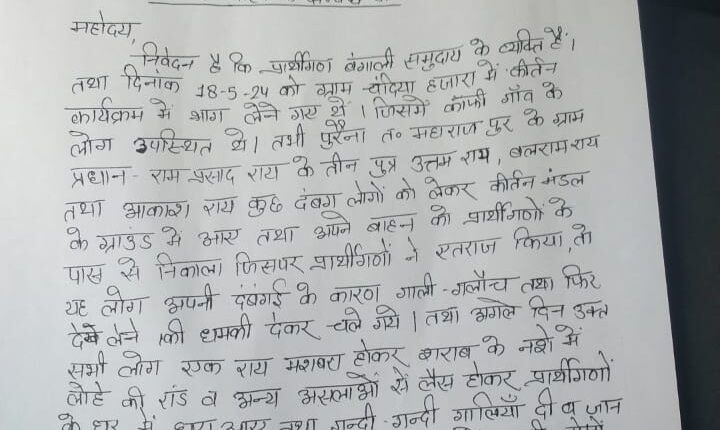 महोदय,
निवेदन है कि प्रार्थीगण बंगाली समुदाय के व्यक्ति हैं।
तथा दिनांक 18-5-24 को ग्राम चंदिया हजारा में कीर्तन
कार्यक्रम में भाग लेने गए थे। जिसमें काँफी गाँव के
लोग उपस्थित थे। तभी पुरैना त० महाराज पुर के ग्राम
प्रधान - राम प्रसाद राय के तीन पुत्र उत्तम राय, बलराम राय
तथा आकाश राय कुछ दंबग लोगों को लेकर कीर्तन मंडल
के ग्राउंड में आए तथा अपने बाहन को प्रार्थीगणों के
पास से निकाला जिसपर प्रार्थीगणों ने एतराज किया, तो
यह लोग अपनी दंबगई के कारण गाली-गलौच तथा फिर
देख लेने की धमकी देकर चले गये। तथा अगले दिन उक्त
सभी लोग एक राय मशवरा होकर शराब के नशे में
लोहे की रॉड व अन्य असलाओं से लैस होकर प्रार्थीगणों
के घर में आए तथा गन्दी-गन्दी गालियाँ दी व जान